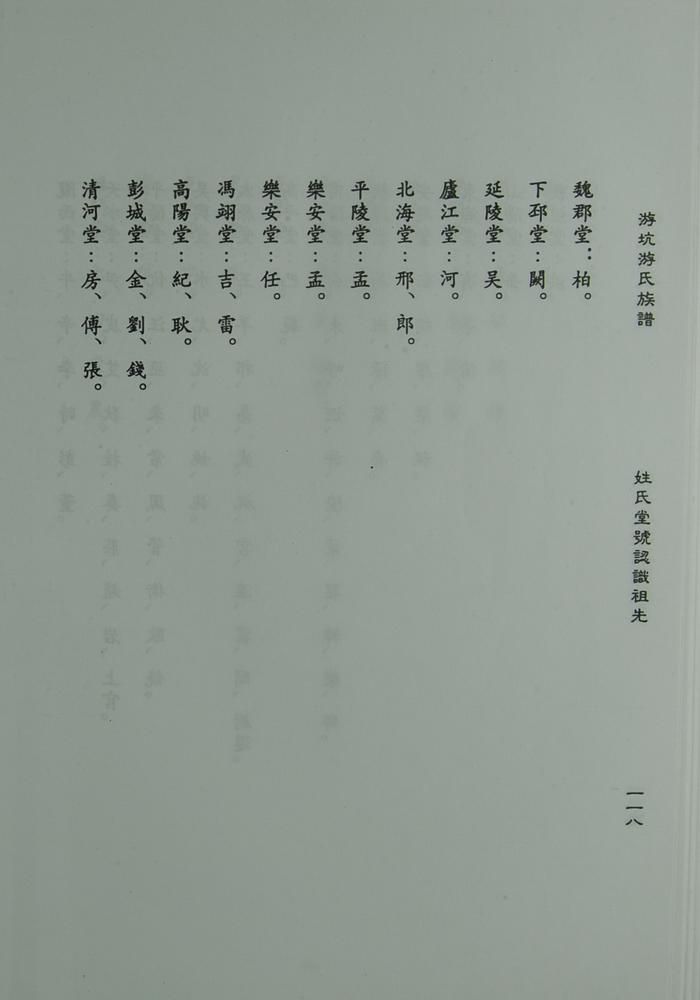 游坑游氏族譜
姓氏堂號認識祖先
一一八
魏郡堂：柏。
下邳堂：闕。
延陵堂：吴。
廬江堂：河。
北海堂：邢、郎。
平陵堂：孟。
樂安堂：孟。
樂安堂：任。
馮翊堂：吉、雷。
高陽堂：紀、耿。
彭城堂：金、劉、錢。
清河堂：房、傅、張。